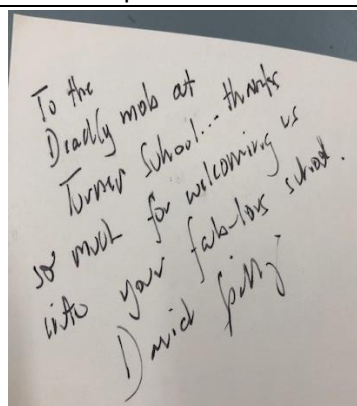 To the
Deadly mob at
Turner School... thanks
so much for welcoming us
into your fabulous school.
David